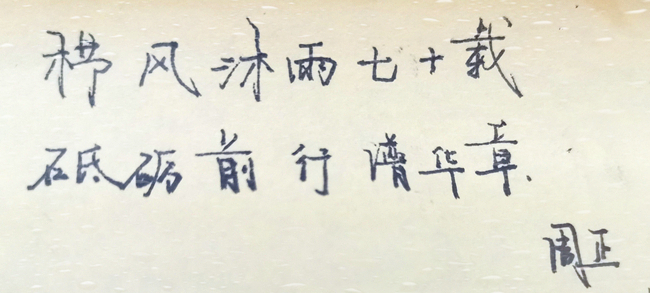 栉风沐雨七十载
砥砺前行谱华章.
周正